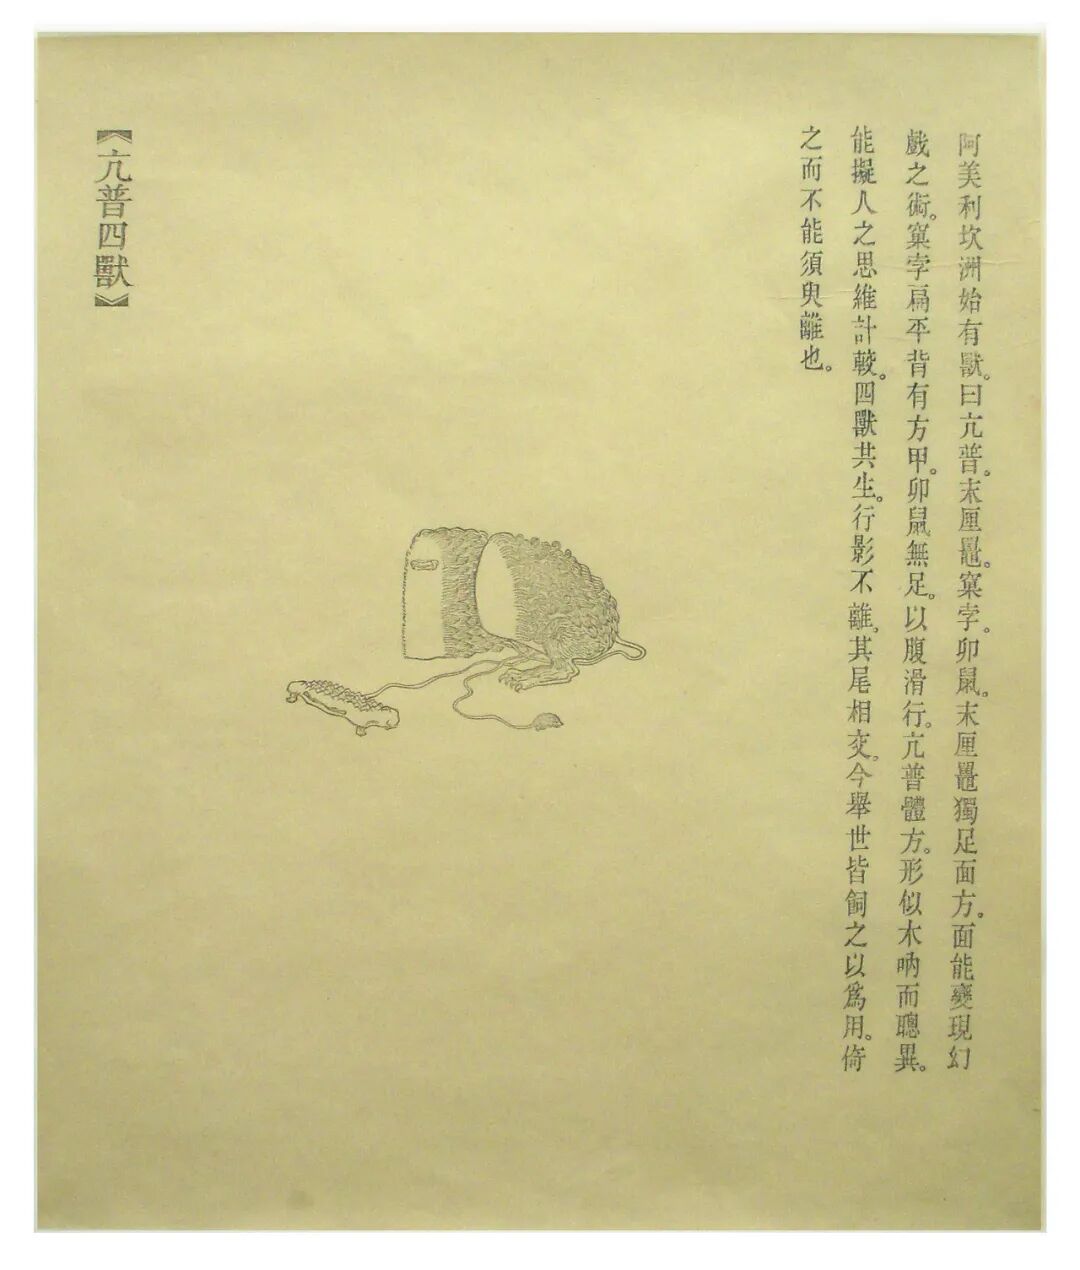 阿美利坎洲始有獸。曰亢普。末厘鼂。窠孛。卯鼠。末厘鼂獨足面方。面能變現幻
戲之術。窠孛扁平背有方甲。卯鼠無足。以腹滑行。亢普體方。形似木吶而聰異。
能擬人之思維計較。四獸共生。行影不離。其尾相交。今舉世皆飼之以爲用。倚
之而不能須臾離也。
【亢普四獸】